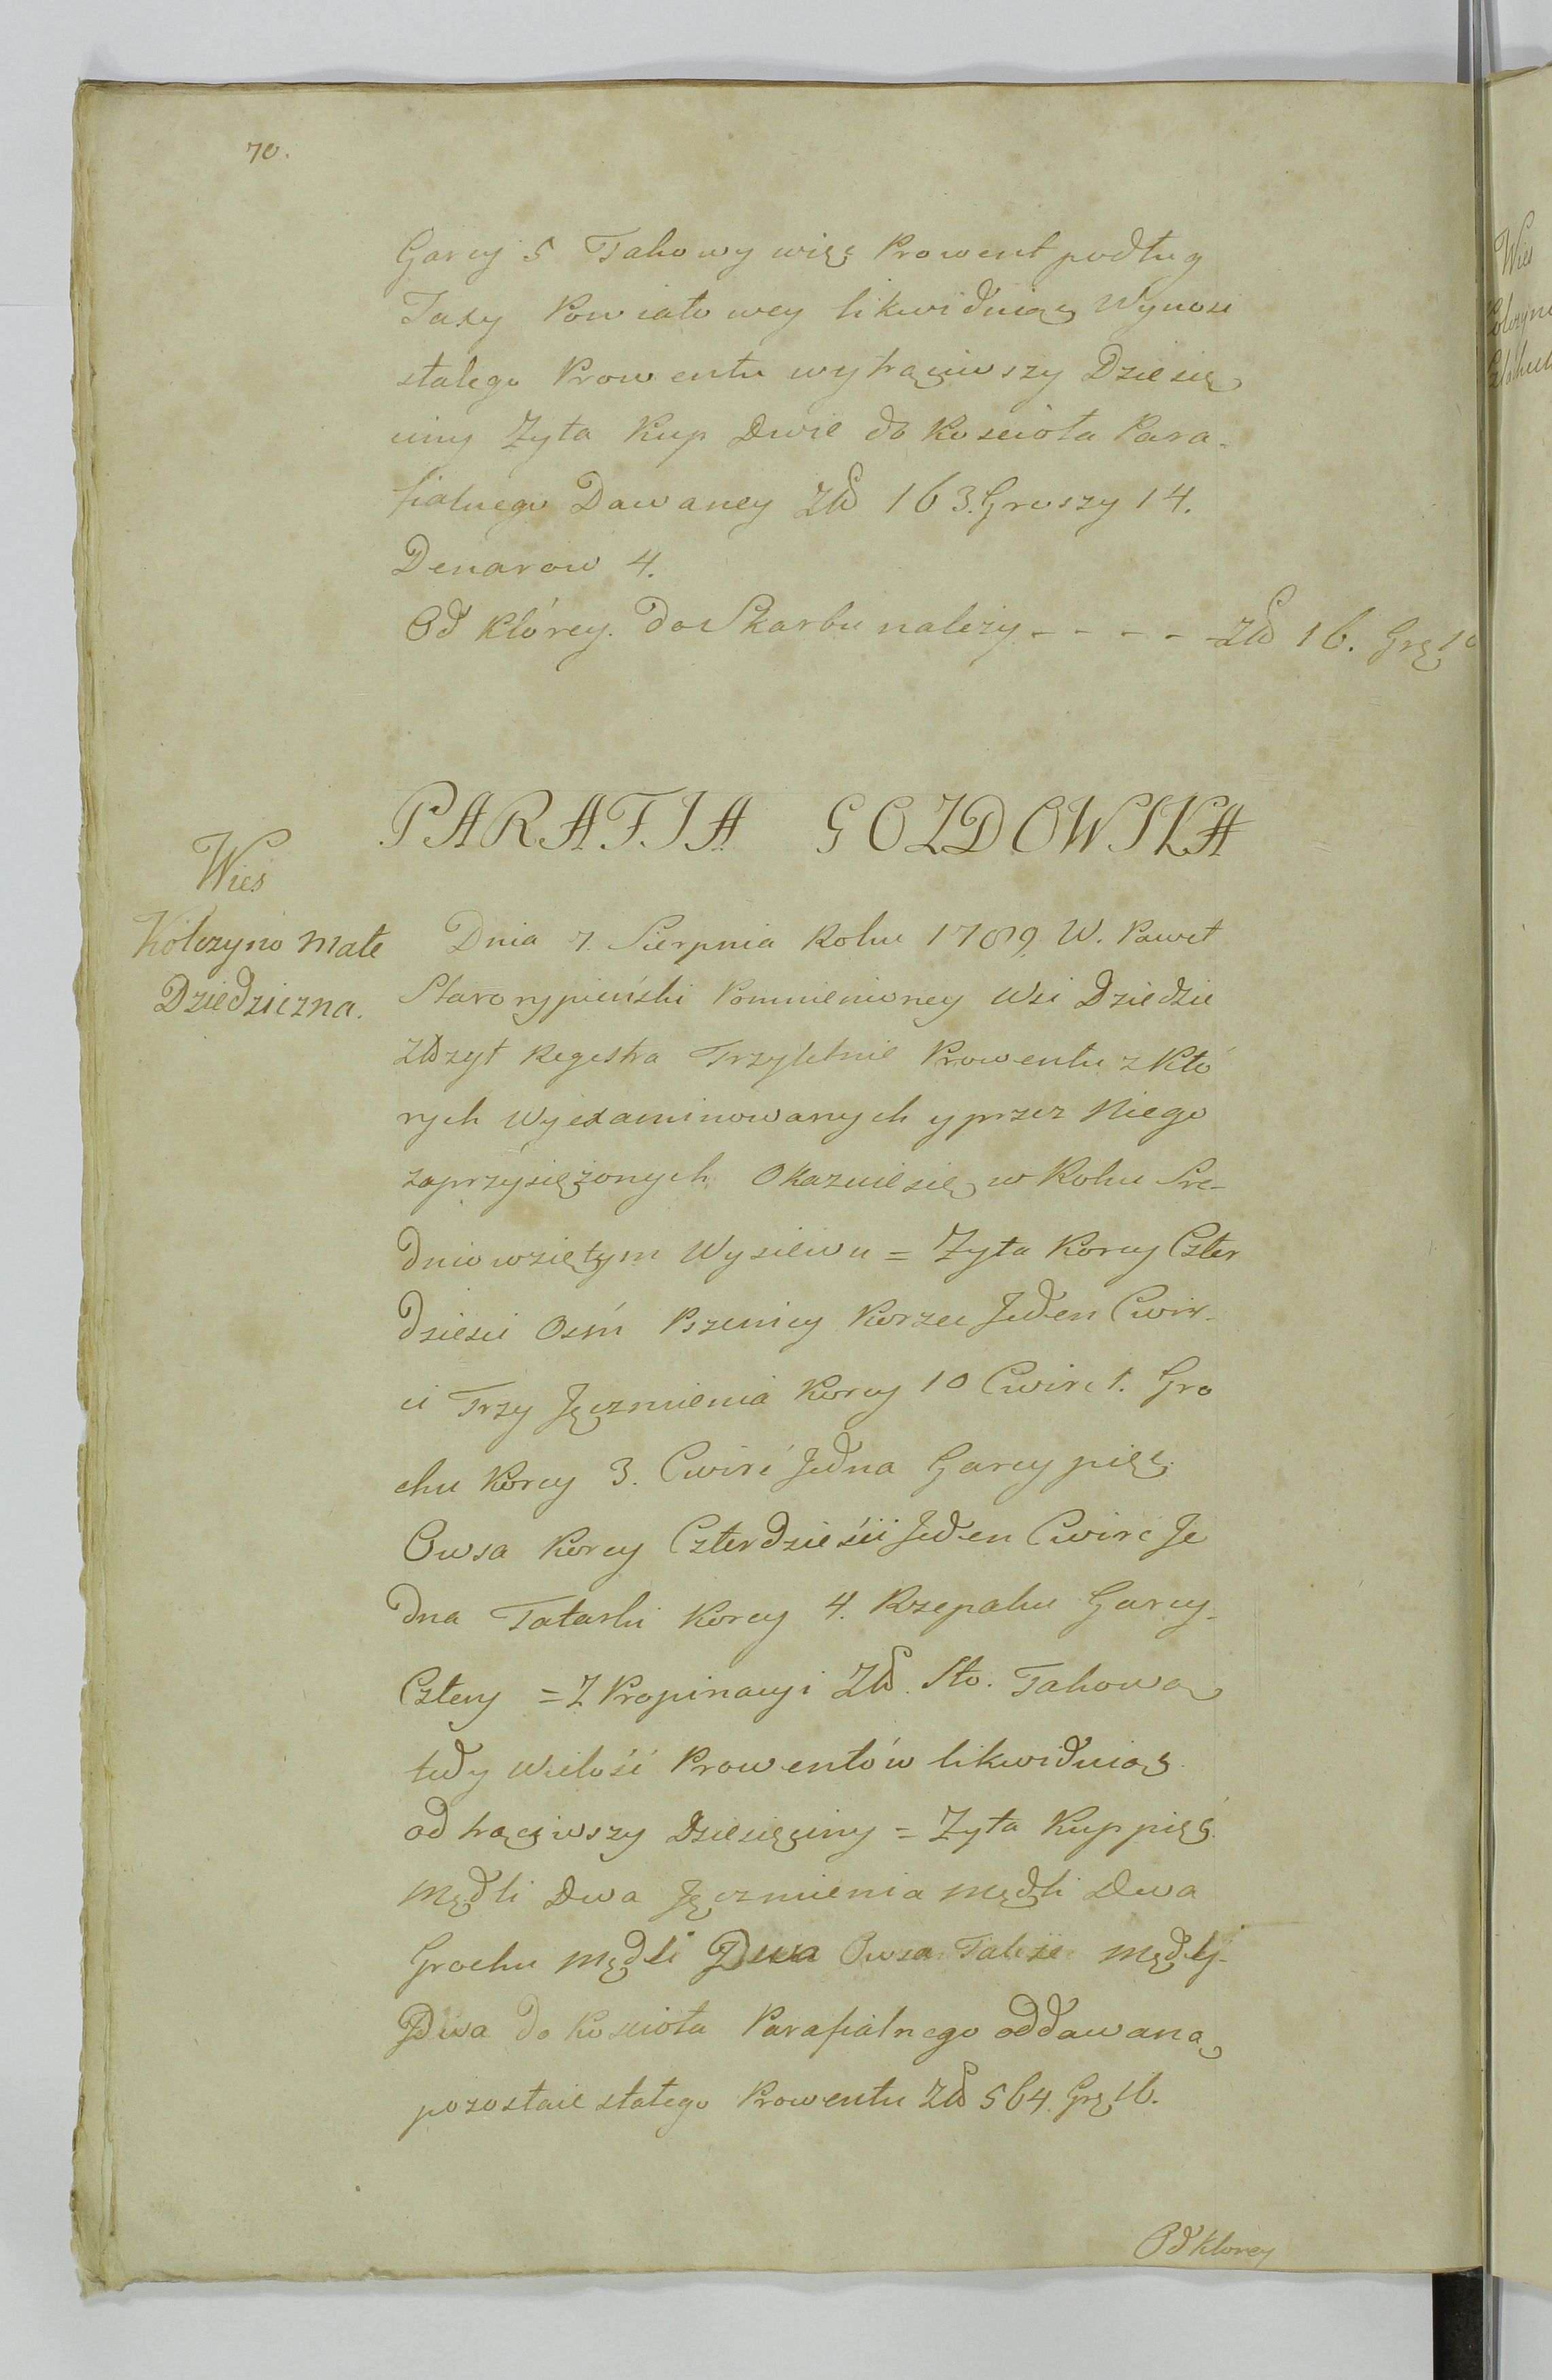 70.
Garcy 5 Takowy więc Prowent podług
Taxy Powiatowey likwiduiąc Wynosi
stałego Prowentu wytrąciwszy Dziesię
ciny Zyta Kup Dwie do Koscióła Para-
fialnego Dawaney Złł 163. Groszy 14.
Denarow 4.
Od którey do Skarbu należy - - - - Złł 16. Grę 10
PARAFIA GOZDOWSKA
Wieś
Kólczyno Małe
Dziedziczna.
Dnia 7. Sierpnia Roku 1789. W. Paweł
Starorypiński Pomnienioney Wsi Dziedzic
Złożył Regestra Trzyletnie Prowentu z Któ
rych Wyexaminowanych y przez Niego
zaprzysiężonych Okazuie się w Roku Sre-
dnio wziętym Wysiewu = Zyta Korcy Czter
dziesci Osm Pszenicy Korzec Jeden Cwir-
ci Trzy Jęczmienia Korcy 10 Cwirc 1. Gro
chu Korcy 3. Cwirć Jedna Garcy pięć
Owsa Korcy Czterdzieści Jeden Cwirć Je
dna Tatarki Korcy 4. Rzepaku Garcy-
Cztery = Z Propinacyi Złł. Sto. Takową
tedy Wielość Prowentów likwiduiąc
odtrąciwszy Dziesięciny = Zyta Kup pięć
Mędli Dwa Jęczmienia Mędli Dwa
Grochu Mędli Dwa Owsa Także Mędly-
Dwa do Koscioła Parafialnego oddawaną
pozostaie stałego Prowentu Złł 564. Grę 16.
Od Ktorey
Wieś